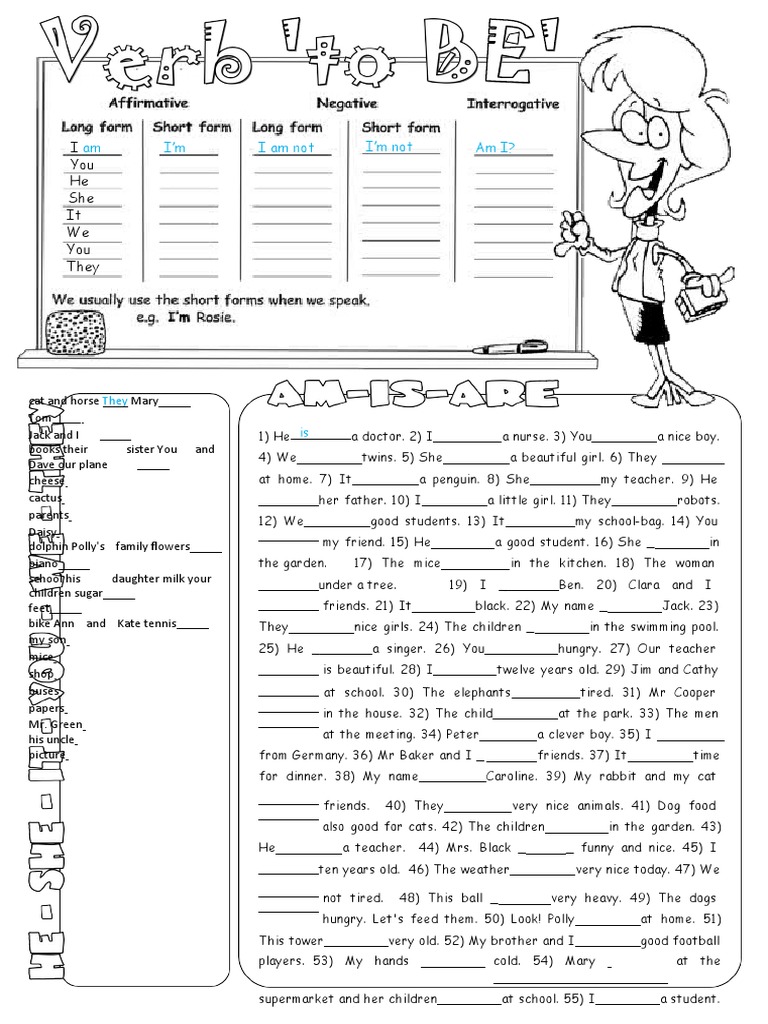 Verb 'to BE'
Affirmative Negative Interrogative
Long form Short form Long form Short form
I am I'm I am not I'm not Am I?
You
He
She
It
We
You
They
We usually use the short forms when we speak,
e.g. I'm Rosie.
HE - SHE - IT - YOU - WE - THEY
cat and horse They Mary_____
Tom_____.
Jack and I _____
books their sister You and
Dave our plane _____
cheese_
cactus_
parents_
Daisy_
dolphin Polly's family flowers_____
piano_____
school his daughter milk your
children sugar_____
feet_____
bike Ann and Kate tennis_____
my son_
mice_
shop_
buses_
papers_
Mr. Green_
his uncle_
picture_
AM-IS-ARE
1) He is a doctor. 2) I________a nurse. 3) You________a nice boy.
4) We________twins. 5) She________a beautiful girl. 6) They ________
at home. 7) It________a penguin. 8) She________my teacher. 9) He
________her father. 10) I________a little girl. 11) They________robots.
12) We________good students. 13) It________my school-bag. 14) You
________ my friend. 15) He________a good student. 16) She ________in
the garden. 17) The mice________in the kitchen. 18) The woman
________under a tree. 19) I ________Ben. 20) Clara and I
________ friends. 21) It________black. 22) My name ________Jack. 23)
They________nice girls. 24) The children ________in the swimming pool.
25) He ________a singer. 26) You________hungry. 27) Our teacher
________ is beautiful. 28) I________twelve years old. 29) Jim and Cathy
________ at school. 30) The elephants________tired. 31) Mr Cooper
________ in the house. 32) The child________at the park. 33) The men
________ at the meeting. 34) Peter________a clever boy. 35) I ________
from Germany. 36) Mr Baker and I ________friends. 37) It________time
for dinner. 38) My name________Caroline. 39) My rabbit and my cat
________ friends. 40) They________very nice animals. 41) Dog food
________ also good for cats. 42) The children________in the garden. 43)
He________a teacher. 44) Mrs. Black ________ funny and nice. 45) I
________ten years old. 46) The weather________very nice today. 47) We
________ not tired. 48) This ball ________very heavy. 49) The dogs
________ hungry. Let's feed them. 50) Look! Polly________at home. 51)
This tower________very old. 52) My brother and I________good football
players. 53) My hands ________ cold. 54) Mary _ at the
supermarket and her children________at school. 55) I________a student.